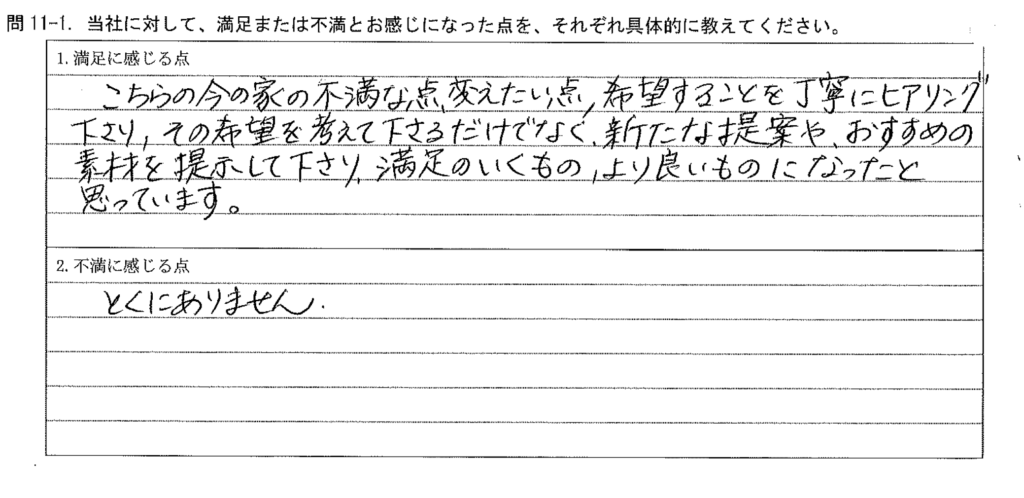 問 11-1. 当社に対して、満足または不満とお感じになった点を、それぞれ具体的に教えてください。
1. 満足に感じる点
こちらの今の家の不満な点、変えたい点、希望することを丁寧にヒアリング
下さり、その希望を考えて下さるだけでなく、新たな提案や、おすすめの
素材を提示して下さり、満足のいくもの、より良いものになったと
思っています。
2. 不満に感じる点
とくにありません.